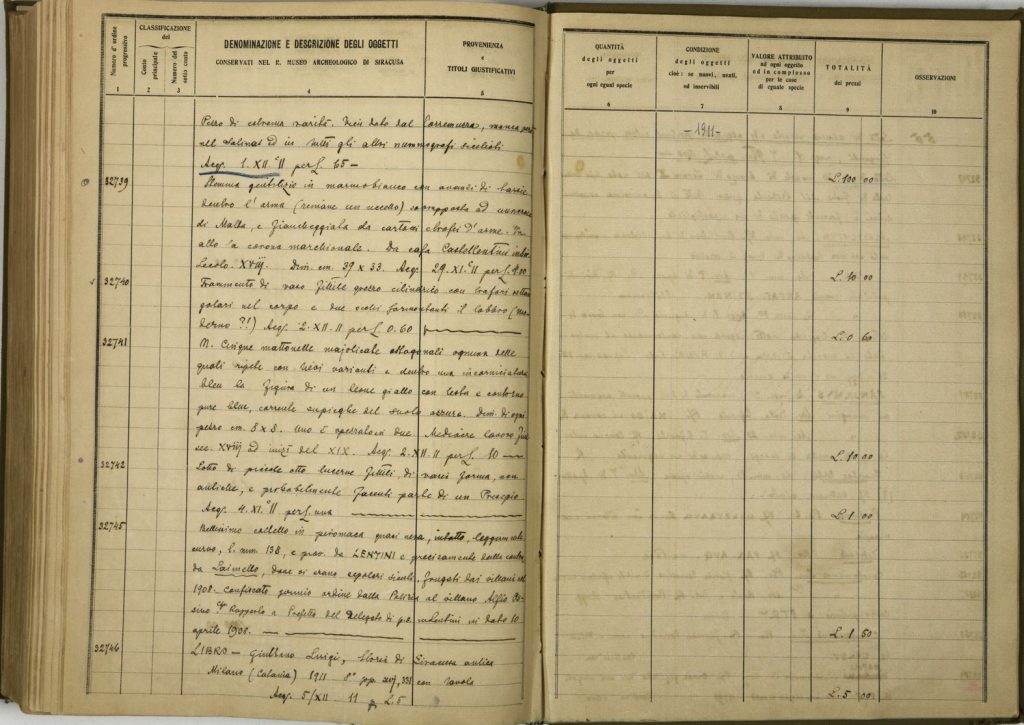 Numero d'ordine progressivo
CLASSIFICAZIONE del
Conto principale
Numero del sotto conto
DENOMINAZIONE E DESCRIZIONE DEGLI OGGETTI
CONSERVATI NEL R. MUSEO ARCHEOLOGICO DI SIRACUSA
PROVENIENZA
e
TITOLI GIUSTIFICATIVI
1 2 3 4 5
Pezzo di estrema rarità. dal Carremuzza, manca
nel Salinas ed in tutti gli altri nummografi sicelioti
Acq. 1. XII. 11 per L. 65 —
32739 Stemma gentilizio in marmo bianco con avanzi di
dentro l'arma (rimane un uccello) sovrapposta ad una croce
di Malta, e fiancheggiata da cartocci e trofei d'arme. In
alto la corona marchionale. Da casa Castellentini
Secolo. XVIII. Dim. cm. 39 x 33. Acq. 29. XI. 11 per L. 100
32740 Frammento di vaso fittile grosso cilindrico con trafori
golari nel corpo e due sormontanti il labbro (mo
derno ?!) Acq. 2. XII. 11 per L. 0.60
32741 N. Cinque mattonelle majolicate ottagonali ognuna delle
quali ripete con lievi varianti e dentro una incorniciatura
bleu la figura di un leone giallo con testa e contorno
pure bleu, corrente del suolo azzuro. Dim. di ogni
pezzo cm. 8 x 8. Uno è spezzato in due. Mediocre lavoro
sec. XVIII ad inizi del XIX. Acq. 2. XII. 11 per L. 10 —
32742 Lotto di piccole otto lucerne fittili, di varia forma, non
antiche, e probabilmente facenti parte di un Presepio
Acq. 4. XI. 11 per L. una
32745 Bellissimo coltello in piromaca quasi nera, intatto, leggermente
curvo, l. mm. 138, e prov. da LENTINI e precisamente dalla contra
da , dove vi erano sepolcri , frugati dai villani nel
1908. Confiscato ordine dalla Polizia al villano Alfio
Rapporto a Prefetto del Delegato di p.s. Lentini in dato 10
aprile 1908.
32746 LIBRO — Luigi, Storia di Siracusa antica
Milano (Catania) 1911 8° pp. XVI, 331 con tavola
Acq. 5/XII 11 p. L. 5
QUANTITÀ
degli oggetti
per
ogni egual specie
CONDIZIONE
degli oggetti
cioè: se nuovi, usati,
od inservibili
VALORE ATTRIBUITO
ad ogni oggetto
ed in complesso
per le cose
di eguale specie
TOTALITÀ
dei prezzi
OSSERVAZIONI
6 7 8 9 10
— 1911 —
L. 100 00
L. 10 00
L. 0 60
L. 10 00
L. 1 00
L. 1 50
L. 5 00